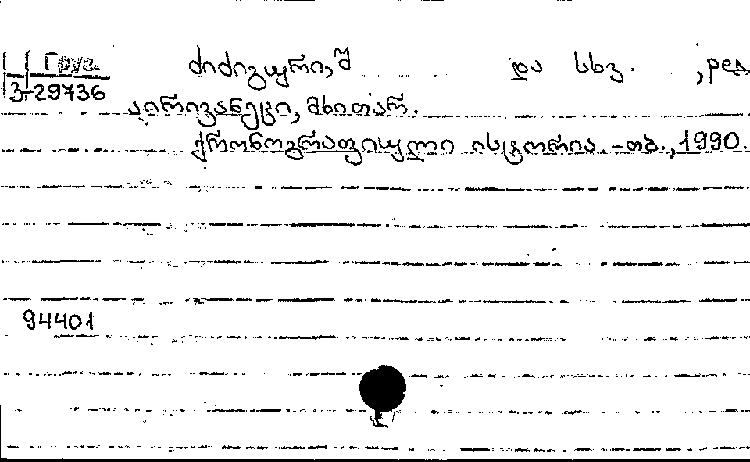 Груз.
3-29736
ძიძიგური, შ და სხვ. , ред.
აირივანეცი, მხითარ.
ქრონოგრაფიული ისტორია. - თბ., 1990.
94401